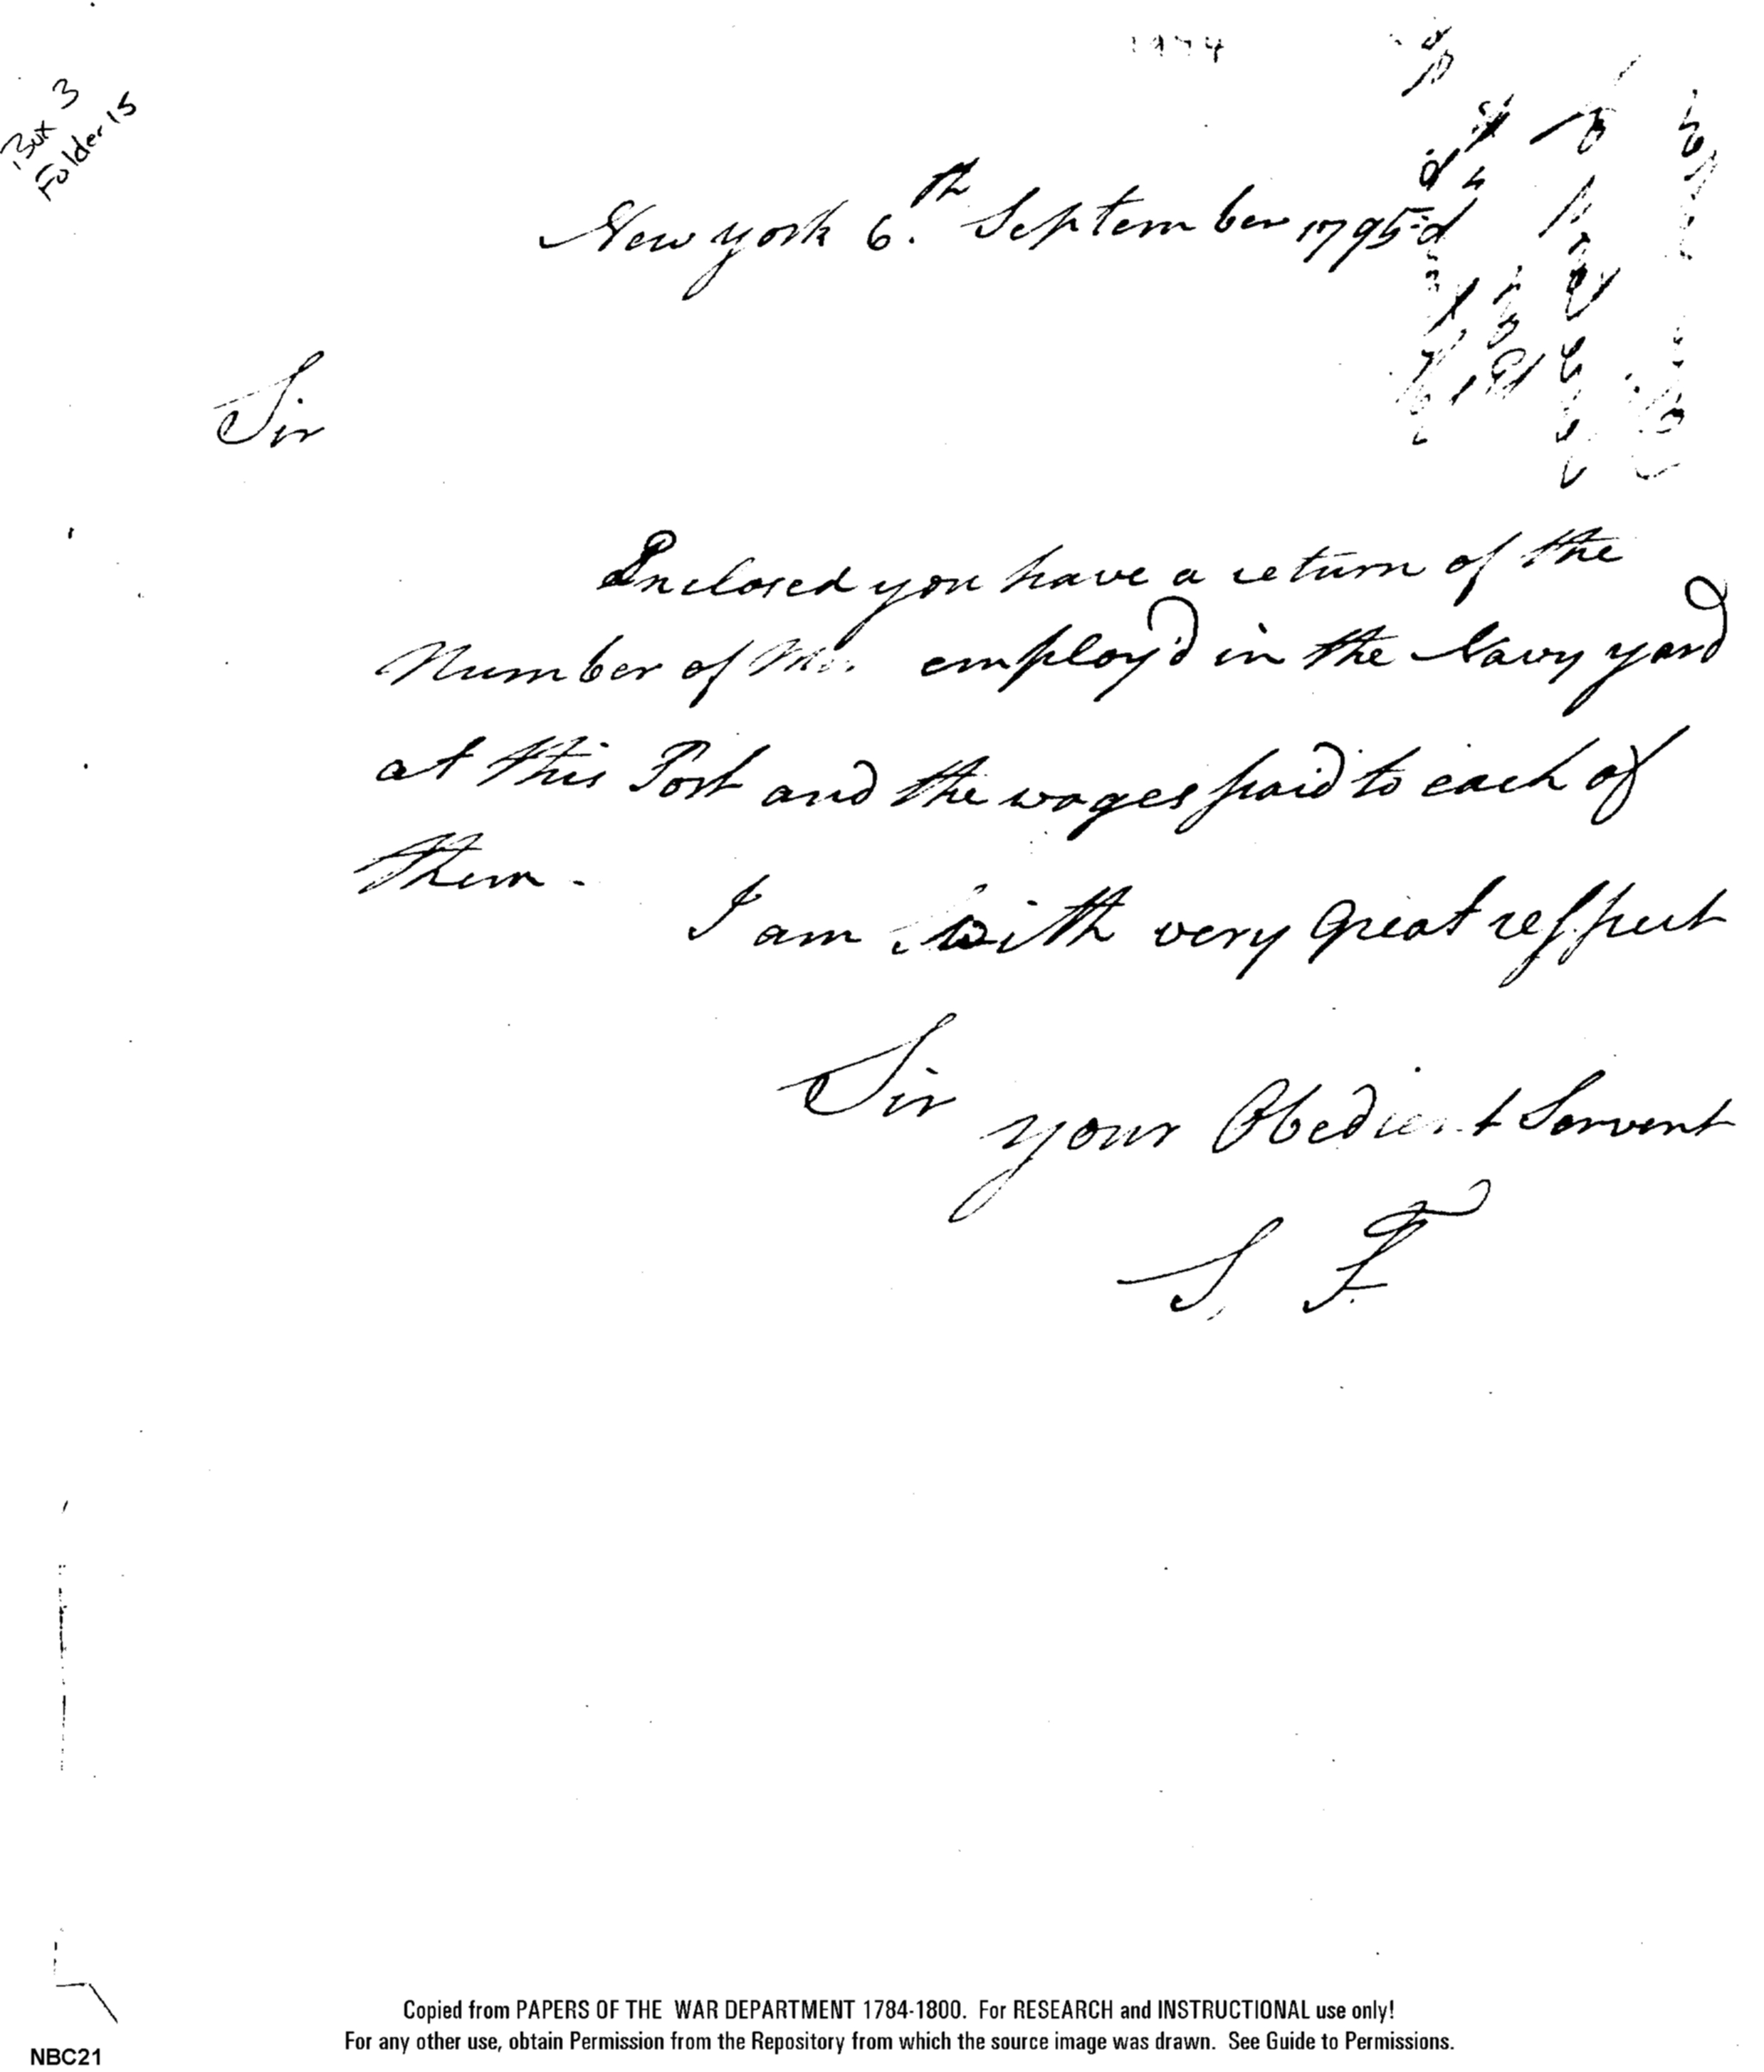 Box 3
Folder 15
New york 6th September 1795
Sir
Enclosed you have a return of the
Number of employ'd in the Navy yard
at this Port and the wages paid to each of
them.
I am with very great respect
Sir
your Obedient Servent
S. F.
Copied from PAPERS OF THE WAR DEPARTMENT 1784-1800. For RESEARCH and INSTRUCTIONAL use only!
For any other use, obtain Permission from the Repository from which the source image was drawn. See Guide to Permissions.
NBC21